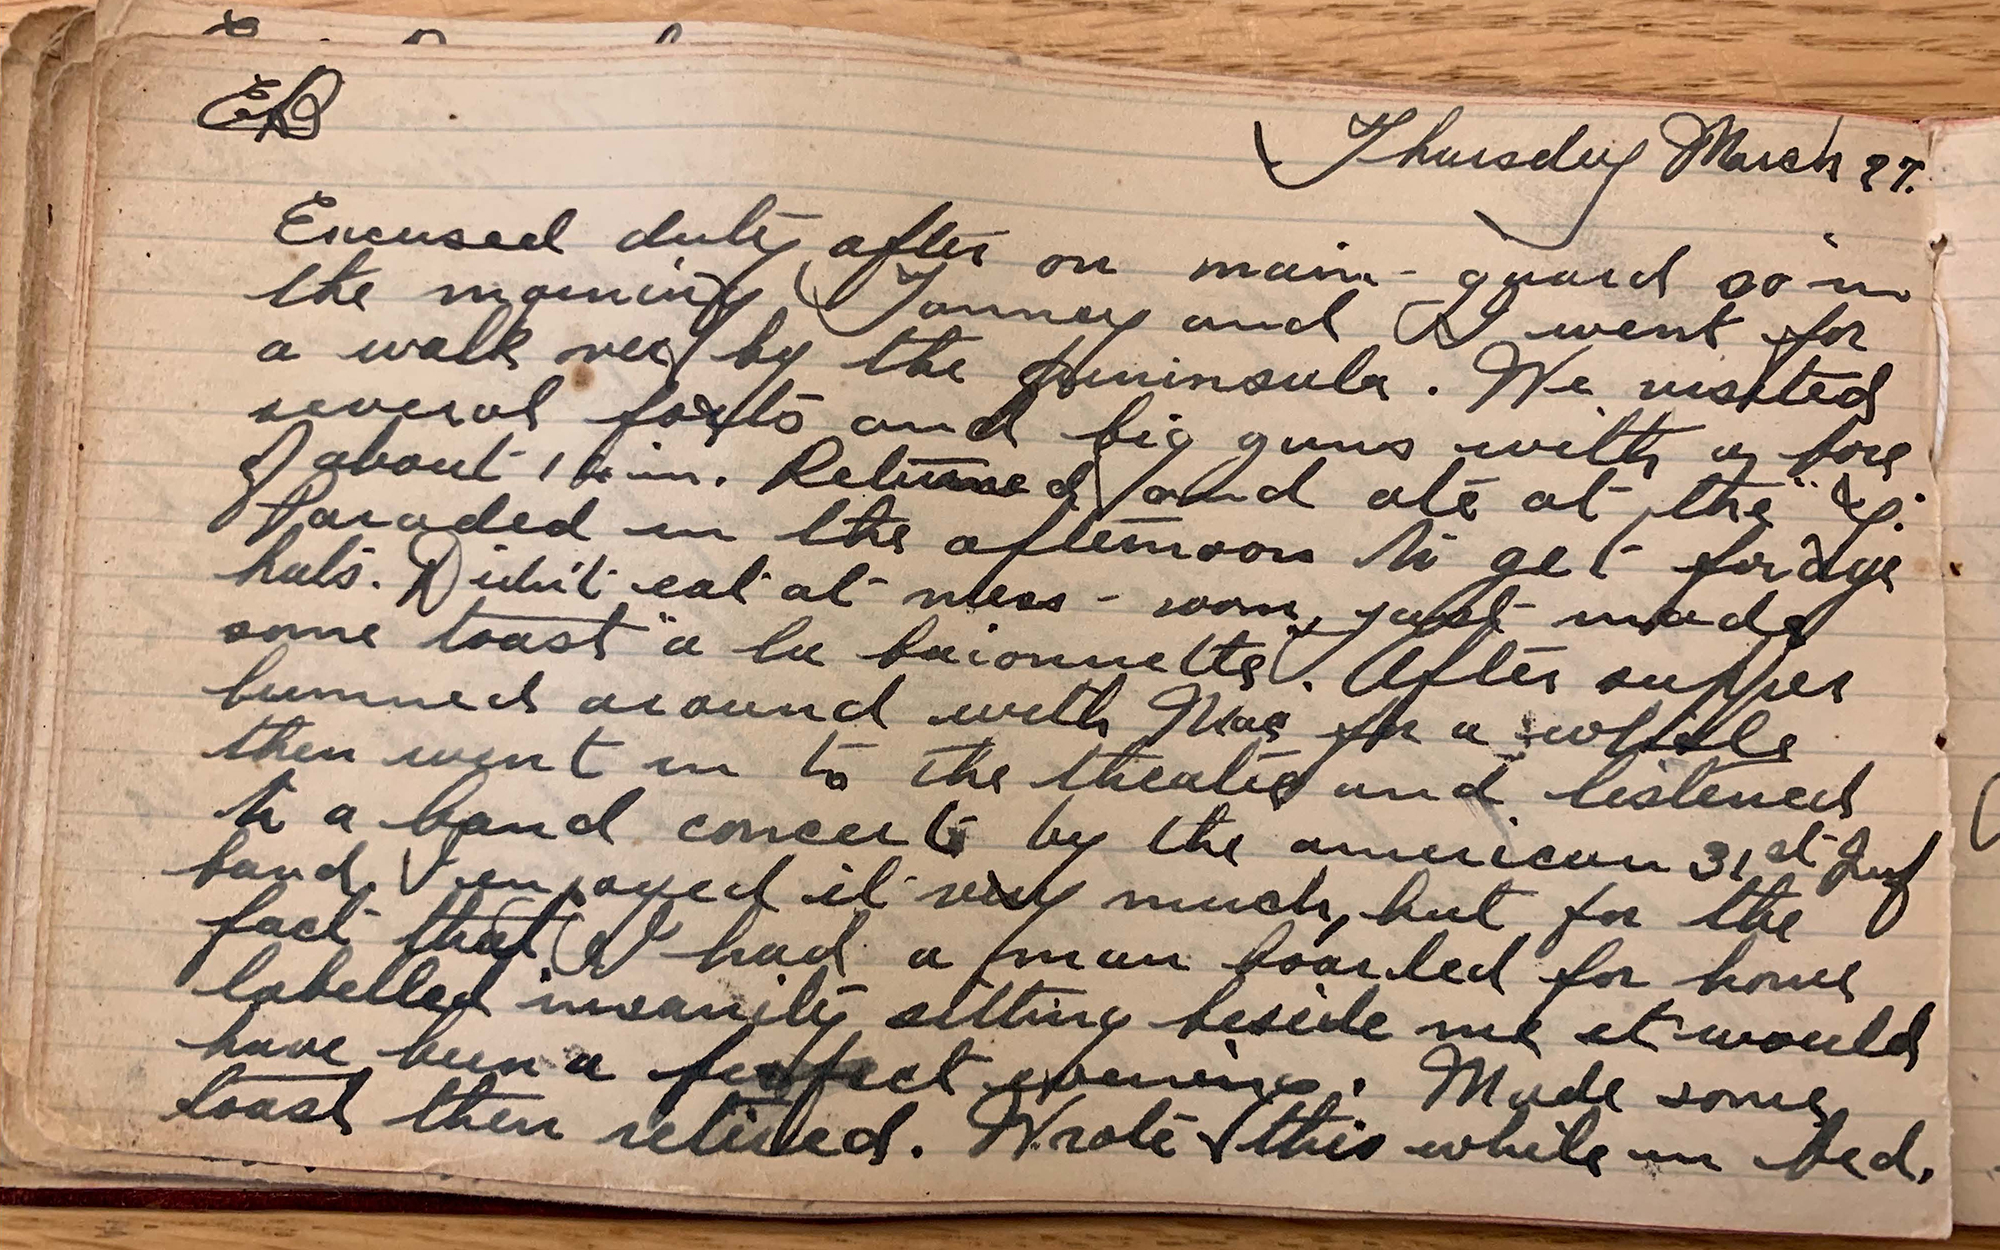 ED
Thursday March 27.
Excused duty after on main-guard so in
the morning Tanney and I went for
a walk over by the peninsula. We visited
several forts and big guns with a bore
of about 1 in. Returned and ate at the "Y".
Paraded in the afternoon to get forage
hats. Didn't eat at mess-room, just made
some toast "a la baionnette". After supper
bummed around with Mac for a while
then went in to the theatre and listened
to a band concert by the american 31st Inf
band. I enjoyed it very much, but for the
fact that I had a man boarded for home
labelled insanity sitting beside me it would
have been a perfect evening. Made some
toast then retired. Wrote this while in bed.